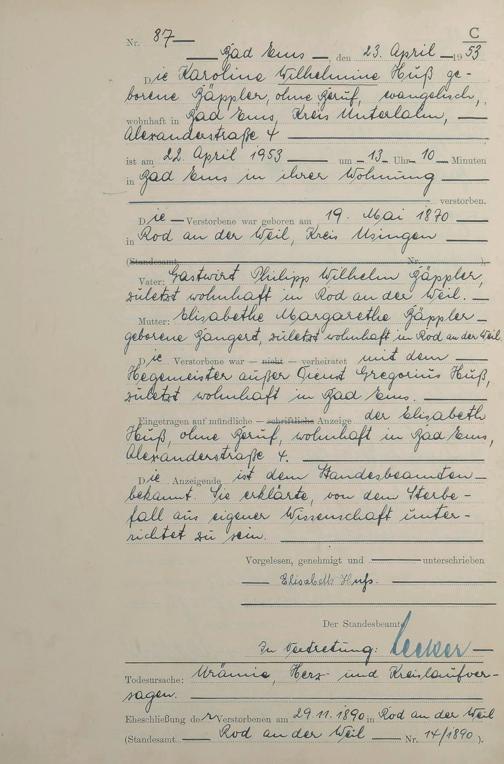 C
Nr. 87
53
Bad Ems, den 23. April 1953
Die Karoline Wilhelmine Huß ge-
borene Bäppler, ohne Beruf, evangelisch,
wohnhaft in Bad Ems, Kreis Unterlahn,
Alexanderstraße 4
ist am 22. April 1953 um 13 Uhr 10 Minuten
in Bad Ems in ihrer Wohnung
verstorben.
Die Verstorbene war geboren am 19. Mai 1870
in Rod an der Weil, Kreis Usingen
(Standesamt Nr. ).
Vater: Gastwirt Philipp Wilhelm Bäppler,
zuletzt wohnhaft in Rod an der Weil.
Mutter: Elisabethe Margarethe Bäppler
geborene Bangert, zuletzt wohnhaft in Rod an der Weil
Die Verstorbene war — nicht — verheiratet mit dem
Hegemeister außer Dienst Gregorius Huß,
zuletzt wohnhaft in Bad Ems.
Eingetragen auf mündliche — schriftliche Anzeige der Elisabeth
Huß, ohne Beruf, wohnhaft in Bad Ems,
Alexanderstraße 4.
Die Anzeigende ist dem Standesbeamten
bekannt. Sie erklärte, von dem Sterbe-
fall aus eigener Wissenschaft unter-
richtet zu sein.
Vorgelesen, genehmigt und unterschrieben
Elisabeth Huß.
Der Standesbeamte
In Vertretung:
Todesursache: Urämie, Herz- und Kreislaufver-
sagen.
Eheschließung der Verstorbenen am 29.11.1890 in Rod an der Weil
(Standesamt Rod an der Weil Nr. 14/1890 ).